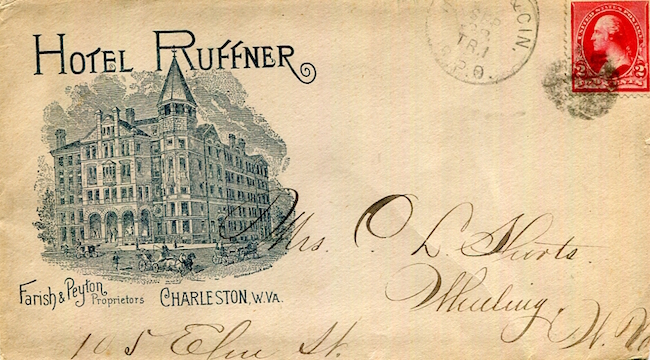 HOTEL RUFFNER
CIN.
SEP
TR.1
P.O.
UNITED STATES POSTAGE
2 2
TWO CENTS
Farish & Peyton
Proprietors
CHARLESTON, W.VA.
Mrs. C. L. Shorts.
Wheeling,
W. Va
105 Elm St.